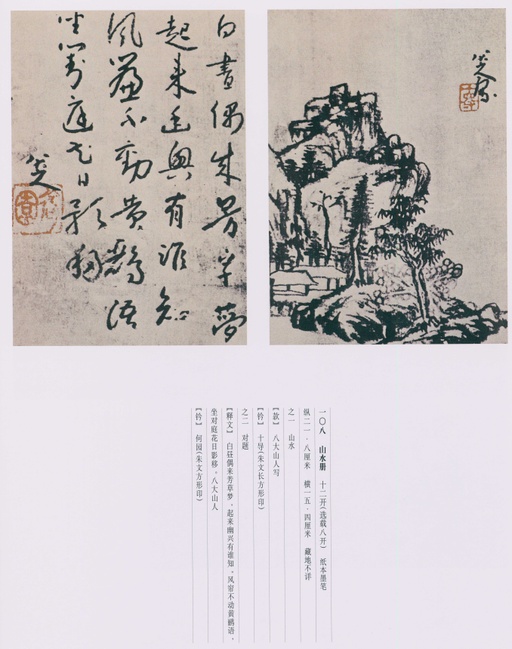 八大山人寫
白晝偶成芳草夢
起來幽興有誰知
風簾不動黃鸝語
坐對庭花日影移
八大山人
一〇八　山水册　十二开(选载八开)　纸本墨笔
纵二一·八厘米　横一五·四厘米　藏地不详
之一　山水
【款】　八大山人写
【钤】　十导(朱文长方形印)
之二　对题
【释文】　白昼偶来芳草梦，起来幽兴有谁知。风帘不动黄鹂语，
坐对庭花日影移。八大山人
【钤】　何园(朱文方形印)